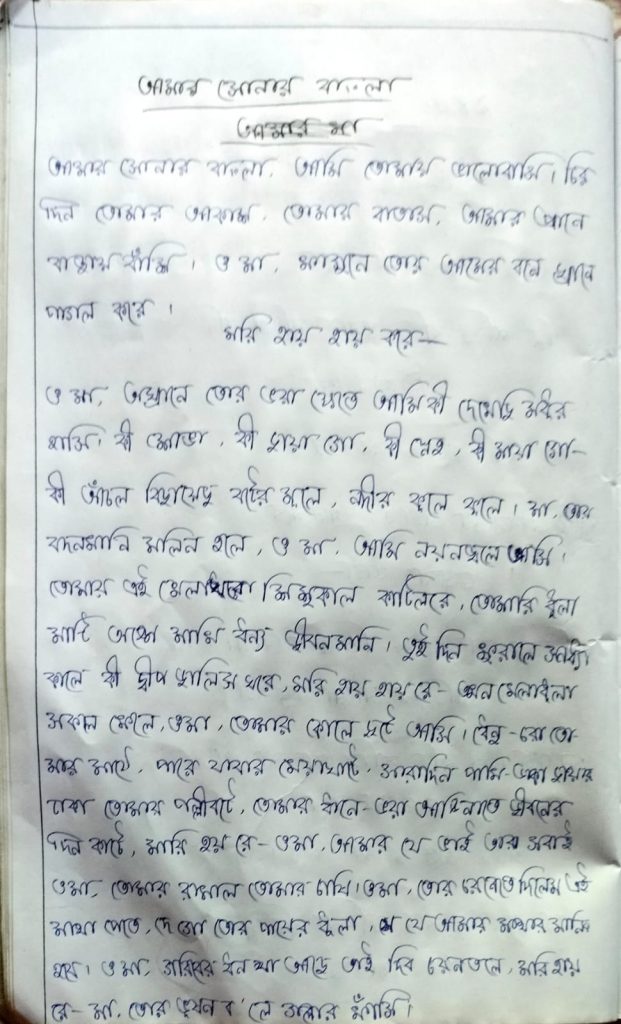 আমার সোনার বাংলা
আমার মা
আমার সোনার বাংলা, আমি তোমায় ভালোবাসি। চির
দিন তোমার আকাশ, তোমার বাতাস, আমার প্রানে
বাজায় বাঁশি। ও মা, ফাগুনে তোর আমের বনে ঘ্রানে
পাগল করে।
মরি হায় হায় করে—
ও মা, অঘ্রানে তোর ভরা ক্ষেতে আমি কী দেখেছি মধুর
হাসি। কী শোভা, কী ছায়া গো, কী স্নেহ, কী মায়া গো-
কী আঁচল বিছায়েছ বটের মূলে, নদীর কূলে কূলে। মা, তোর
বদনখানি মলিন হলে, ও মা, আমি নয়নজলে ভাসি।
তোমার এই খেলাঘরে শিশুকাল কাটিলরে, তোমারি ধুলা
মাটি অঙ্গে মাখি ধন্য জীবনমানি। তুই দিন ফুরালে সন্ধ্যা
কালে কী দীপ জ্বালিস ঘরে, মরি হায় হায় রে- তখন খেলাধুলা
সকল ফেলে, ওমা, তোমার কোলে ছুটে আসি। ধেনু-চরা তো
মার মাঠে, পারে যাবার খেয়াঘাটে, সারাদিন পাখি-ডাকা ছায়ায়
ঢাকা তোমার পল্লীবাটে, তোমার ধানে-ভরা আঙিনাতে জীবনের
দিন কাটে, মারি হায় রে- ওমা, আমার যে ভাই তারা সবাই
ওমা, তোমার রাখাল তোমার চাষি। ওমা, তোর চরণেতে দিলেম এই
মাথা পেতে, দে গো তোর পায়ের ধুলা, সে যে আমার মাথার মানিক
হবে। ও মা, গরিবের ধন যা আছে তাই দিব চরনতলে, মরি হায়
রে- মা, তোর ভূষন ব'লে গলার ফাঁসি।